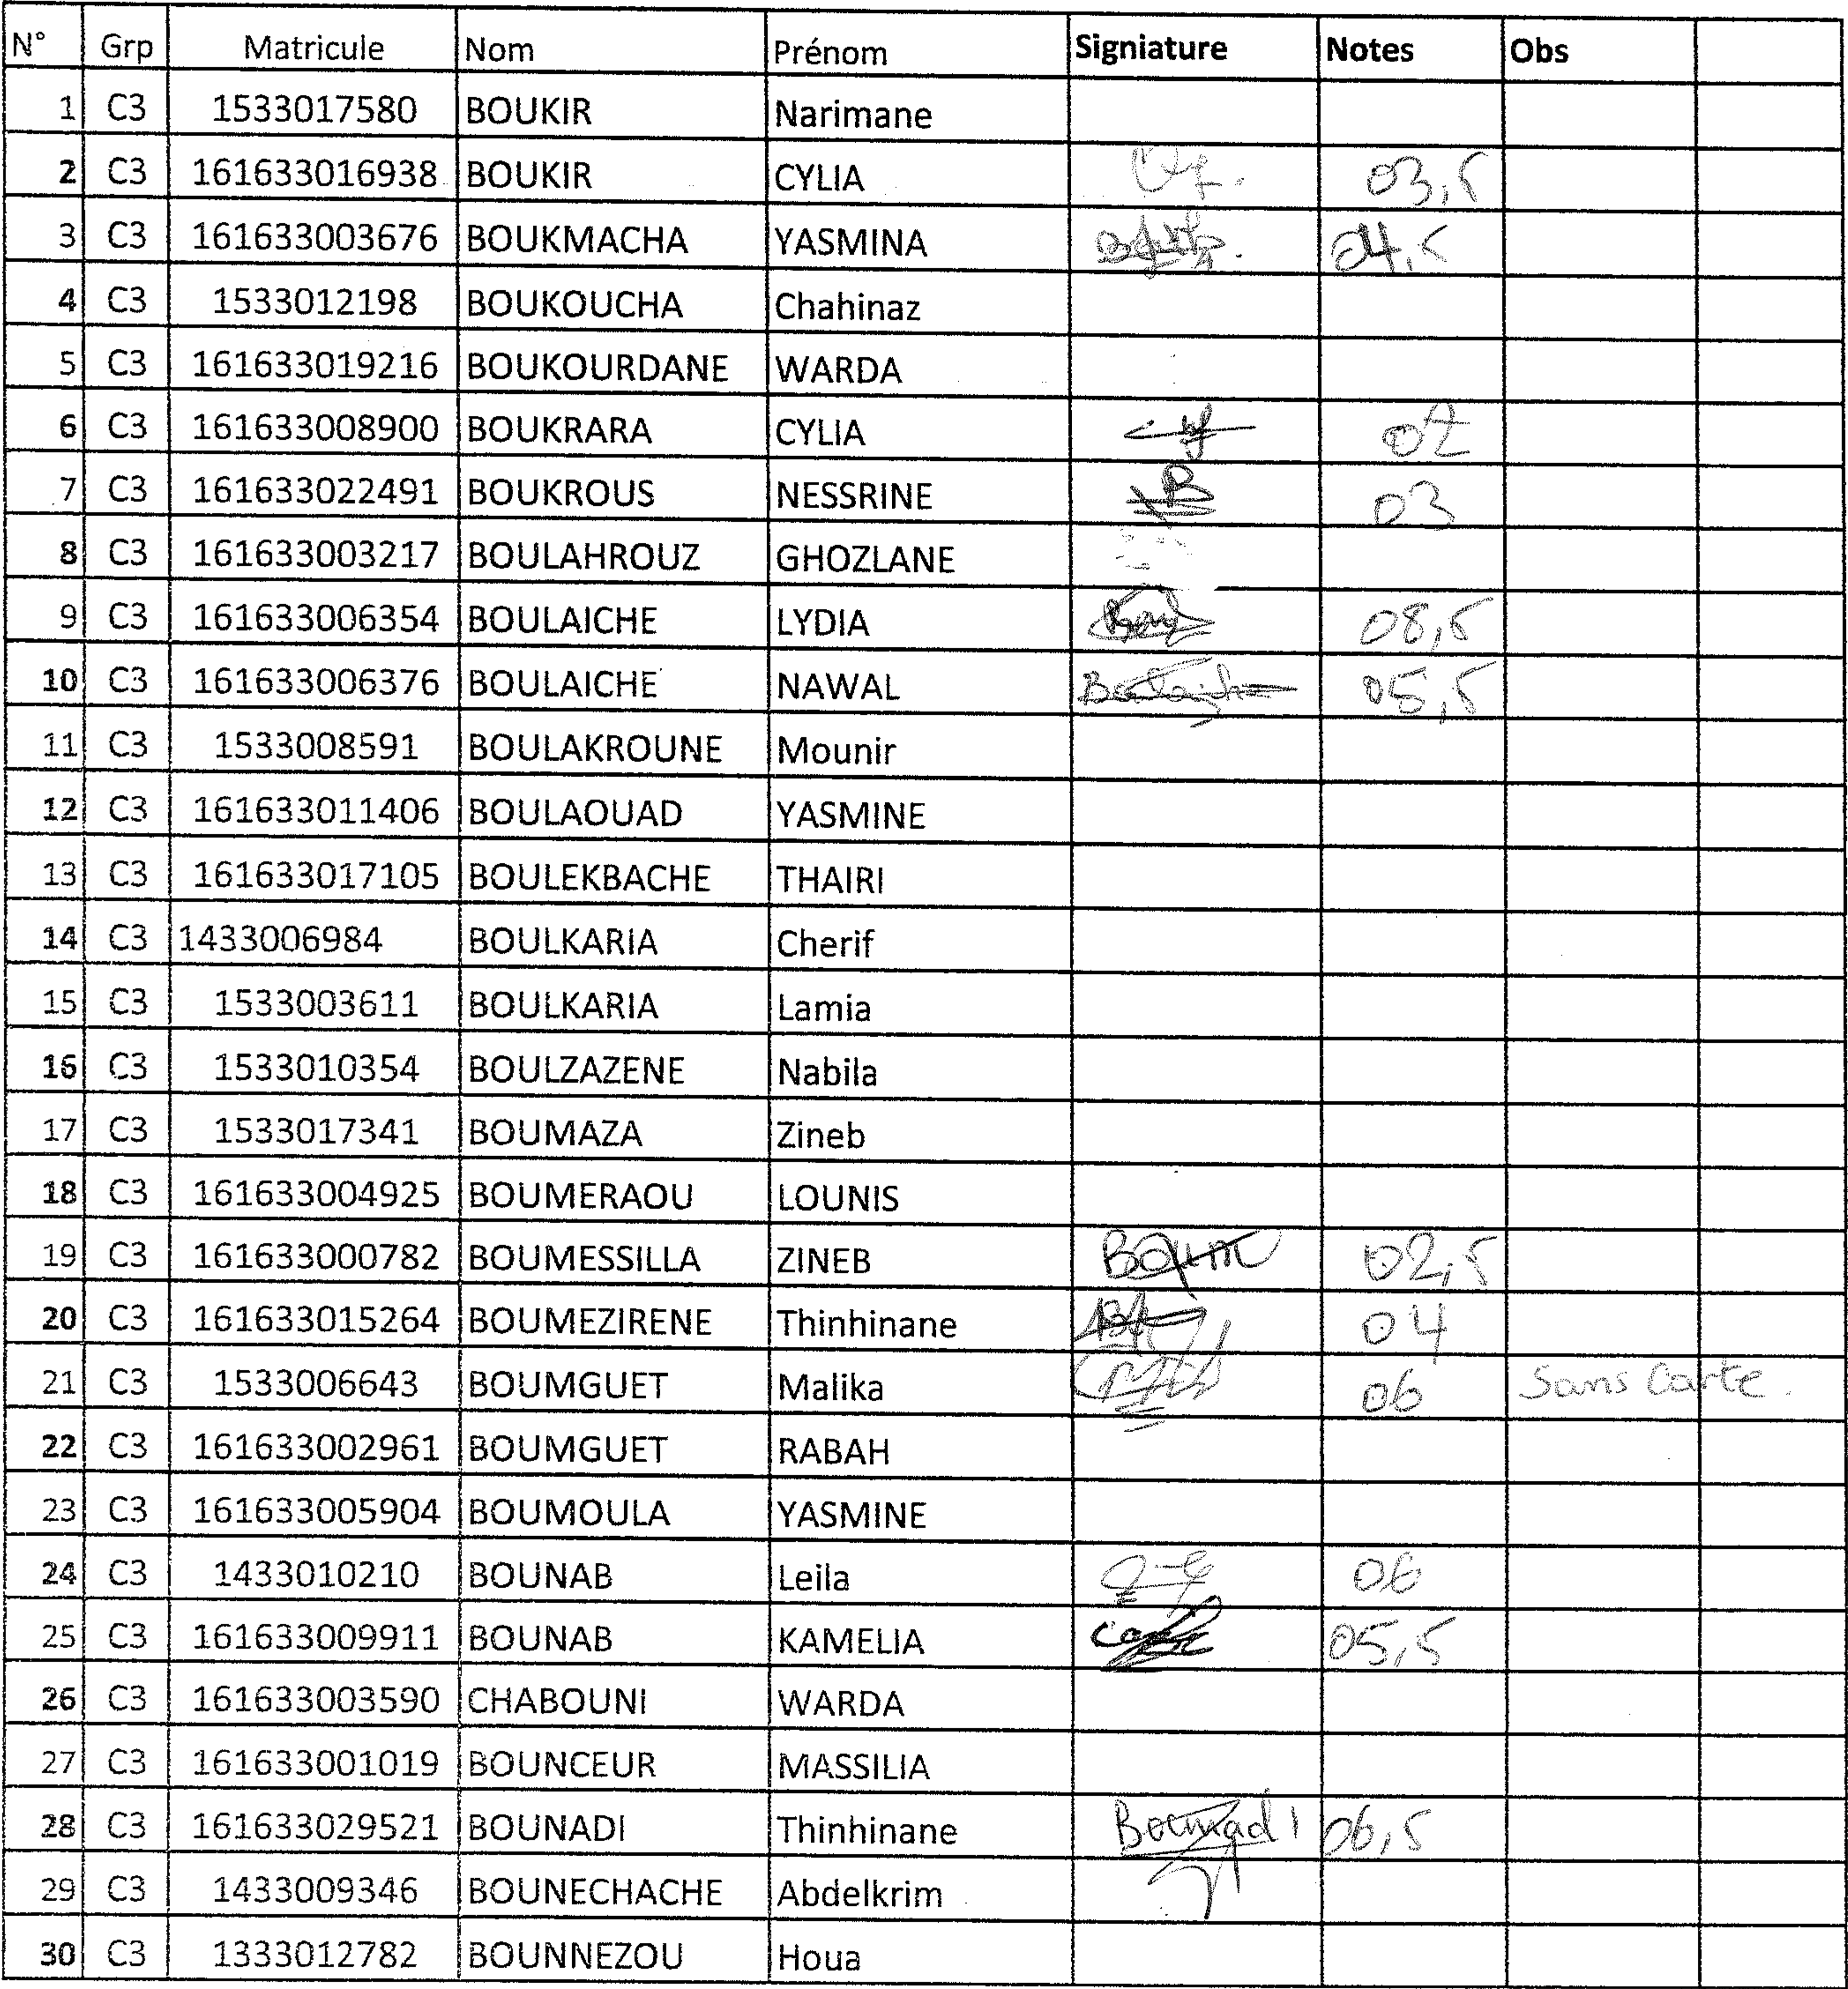 N° Grp Matricule Nom Prénom Signiature Notes Obs
1 C3 1533017580 BOUKIR Narimane
2 C3 161633016938 BOUKIR CYLIA 03,5
3 C3 161633003676 BOUKMACHA YASMINA 04,5
4 C3 1533012198 BOUKOUCHA Chahinaz
5 C3 161633019216 BOUKOURDANE WARDA
6 C3 161633008900 BOUKRARA CYLIA
7 C3 161633022491 BOUKROUS NESSRINE 03
8 C3 161633003217 BOULAHROUZ GHOZLANE
9 C3 161633006354 BOULAICHE LYDIA 08,5
10 C3 161633006376 BOULAICHE NAWAL 05,5
11 C3 1533008591 BOULAKROUNE Mounir
12 C3 161633011406 BOULAOUAD YASMINE
13 C3 161633017105 BOULEKBACHE THAIRI
14 C3 1433006984 BOULKARIA Cherif
15 C3 1533003611 BOULKARIA Lamia
16 C3 1533010354 BOULZAZENE Nabila
17 C3 1533017341 BOUMAZA Zineb
18 C3 161633004925 BOUMERAOU LOUNIS
19 C3 161633000782 BOUMESSILLA ZINEB Boum 02,5
20 C3 161633015264 BOUMEZIRENE Thinhinane 04
21 C3 1533006643 BOUMGUET Malika 06 Sans Carte.
22 C3 161633002961 BOUMGUET RABAH
23 C3 161633005904 BOUMOULA YASMINE
24 C3 1433010210 BOUNAB Leila 06
25 C3 161633009911 BOUNAB KAMELIA 05,5
26 C3 161633003590 CHABOUNI WARDA
27 C3 161633001019 BOUNCEUR MASSILIA
28 C3 161633029521 BOUNADI Thinhinane Bounadi 06,5
29 C3 1433009346 BOUNECHACHE Abdelkrim
30 C3 1333012782 BOUNNEZOU Houa